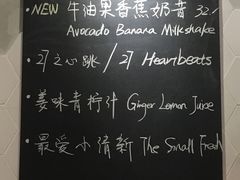 • NEW 牛油果香蕉奶昔 32/
Avocado Banana Milkshake
• 27之心跳 / 27 Heartbeats
• 姜味青柠汁 Ginger Lemon Juice
• 最爱小清新 The Small Fresh